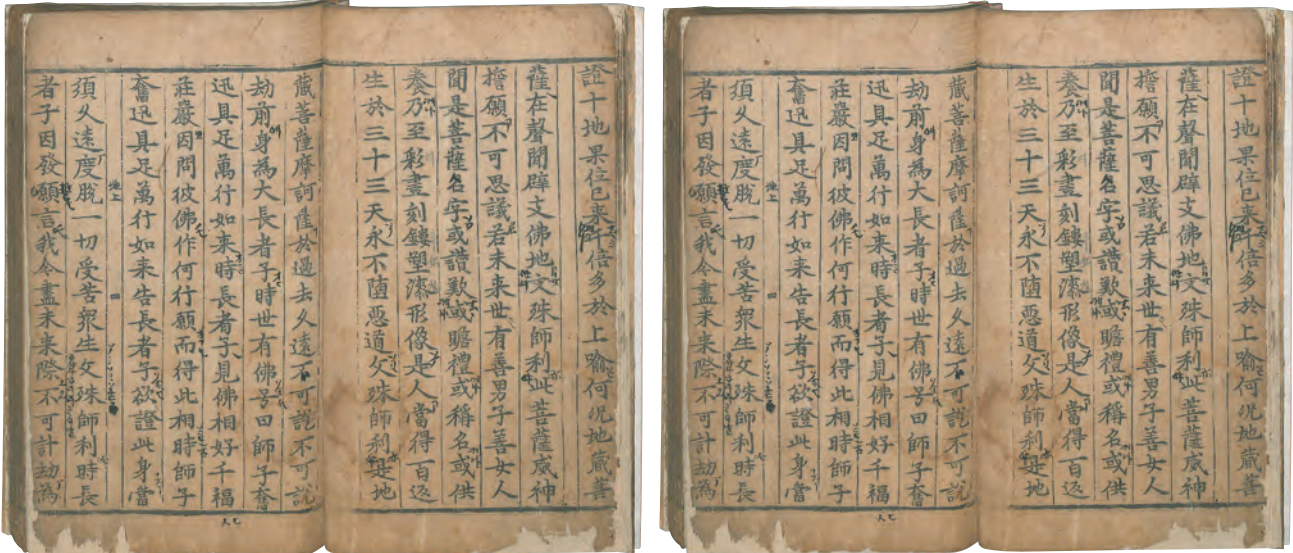 證十地果位已来千倍多於上喻何况地藏菩
薩在聲聞辟支佛地文殊師利此菩薩威神
擔願不可思議若未来世有善男子善女人
聞是菩薩名字或讃歎或瞻禮或稱名或供
養乃至彩畫刻鏤塑漆形像是人當得百返
生於三十三天永不墮惡道文殊師利是地
藏菩薩摩訶薩於過去久遠不可說不可說
劫前身為大長者子時世有佛号曰師子奮
迅具足萬行如来時長者子見佛相好千福
莊嚴因問彼佛作何行願而得此相時師子
奮迅具足萬行如来告長者子欲證此身當
地上 四
須久遠度脫一切受苦衆生文殊師利時長
者子因發願言我今盡未来際不可計劫為
證十地果位已来千倍多於上喻何况地藏菩
薩在聲聞辟支佛地文殊師利此菩薩威神
擔願不可思議若未来世有善男子善女人
聞是菩薩名字或讃歎或瞻禮或稱名或供
養乃至彩畫刻鏤塑漆形像是人當得百返
生於三十三天永不墮惡道文殊師利是地
藏菩薩摩訶薩於過去久遠不可說不可說
劫前身為大長者子時世有佛号曰師子奮
迅具足萬行如来時長者子見佛相好千福
莊嚴因問彼佛作何行願而得此相時師子
奮迅具足萬行如来告長者子欲證此身當
地上 四
須久遠度脫一切受苦衆生文殊師利時長
者子因發願言我今盡未来際不可計劫為